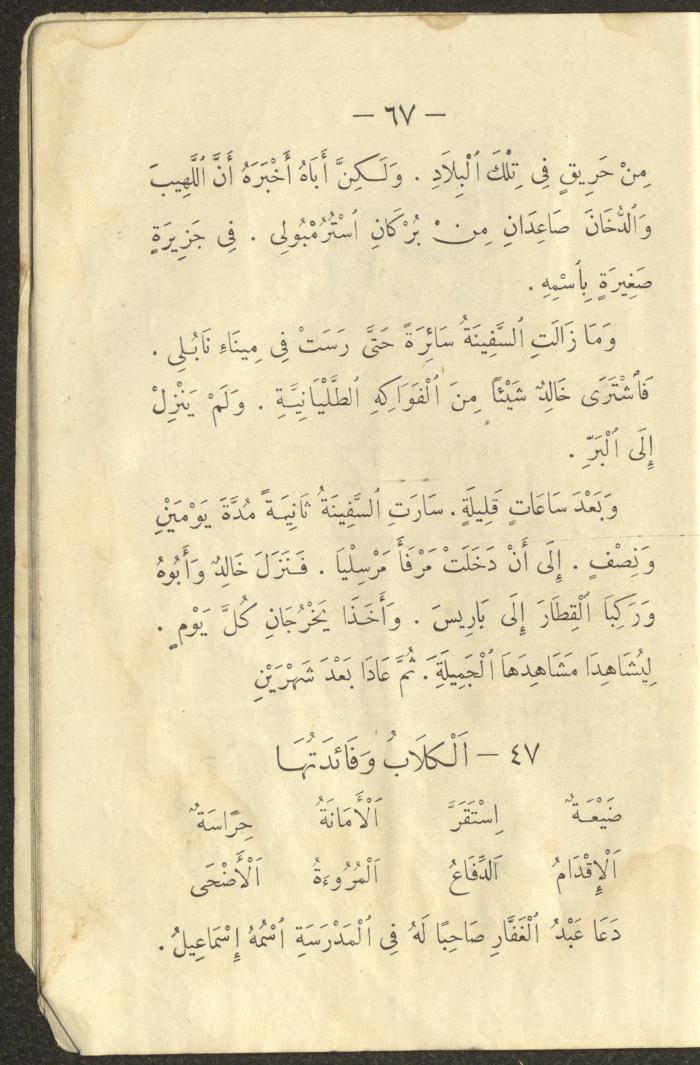 — ٦٧ —
مِنْ حَرِيقٍ فِى تِلْكَ ٱلْبِلَادِ . وَلَـكِنَّ أَبَاهُ أَخْبَرَهُ أَنَّ ٱللَّهِيبَ
وَٱلدُّخَانَ صَاعِدَانِ مِنْ بُرْكَانِ ٱسْتُرُمْبُولِى . فِى جَزِيرَةٍ
صَغِيرَةٍ بِٱسْمِهِ .
وَمَا زَالَتِ ٱلسَّفِينَةُ سَائِرَةً حَتَّى رَسَتْ فِى مِينَاءِ نَابُلِى .
فَٱشْتَرَى خَالِدٌ شَيْئاً مِنَ ٱلْفَوَاكِهِ ٱلطَّلْيَانِيَّةِ . وَلَمْ يَنْزِلْ
إِلَى ٱلْبَرِّ .
وَبَعْدَ سَاعَاتٍ قَلِيلَةٍ . سَارَتِ ٱلسَّفِينَةُ ثَانِيَةً مُدَّةَ يَوْمَيْنِ
وَنِصْفٍ . إِلَى أَنْ دَخَلَتْ مَرْفَأَ مَرْسِلْيَا . فَنَزَلَ خَالِدٌ وَأَبُوهُ
وَرَكِبَا ٱلْقِطَارَ إِلَى بَارِيسَ . وَأَخَذَا يَخْرُجَانِ كُلَّ يَوْمٍ .
لِيُشَاهِدَا مَشَاهِدَهَا ٱلْجَمِيلَةَ . ثُمَّ عَادَا بَعْدَ شَهْرَيْنِ
٤٧ — اَلْكِلَابُ وَفَائِدَتُهَا
ضَيْعَةٌ اِسْتَقَرَّ اَلْأَمَانَةُ حِرَاسَةٌ
اَلْإِقْدَامُ اَلدِّفَاعُ اَلْمُرُوءَةُ اَلْأَضْحَى
دَعَا عَبْدُ ٱلْغَفَّارِ صَاحِبًا لَهُ فِى ٱلْمَدْرَسَةِ ٱسْمُهُ إِسْمَاعِيلُ .